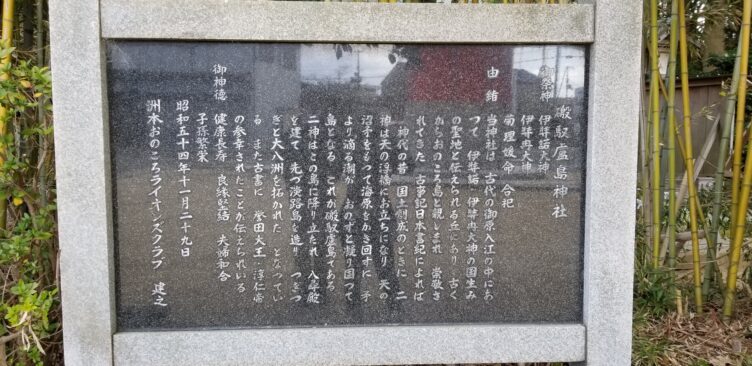 磤馭盧島神社
御祭神 伊弉諾大神
伊弉冉大神
菊理媛命 合祀
由緒 当神社は 古代の御原入江の中にあ
つて 伊弉諾 伊弉冉大神の国生み
の聖地と伝えられる丘であり 古く
からおのころ島と親しまれ 崇敬さ
れてきた 古事記日本書紀によれば
神代の昔 国土創成のときに 二
神は天の浮橋にお立ちになり 天の
沼矛をもつて海原をかき回すに 矛
より滴る潮が おのずと凝り固つて
島となる これが磤馭盧島である
二神はこの島に降り立たれ 八尋殿
を建て 先づ淡路島を造り つぎつ
ぎと大八洲を拓かれた となつてい
る また古書に 誉田天皇 淳仁帝
の参幸されたことが伝えられいる
御神徳 健康長寿 良縁堅結 夫婦和合
子孫繁栄
昭和五十四年十一月二十九日
洲本おのころライオンズクラブ 建之